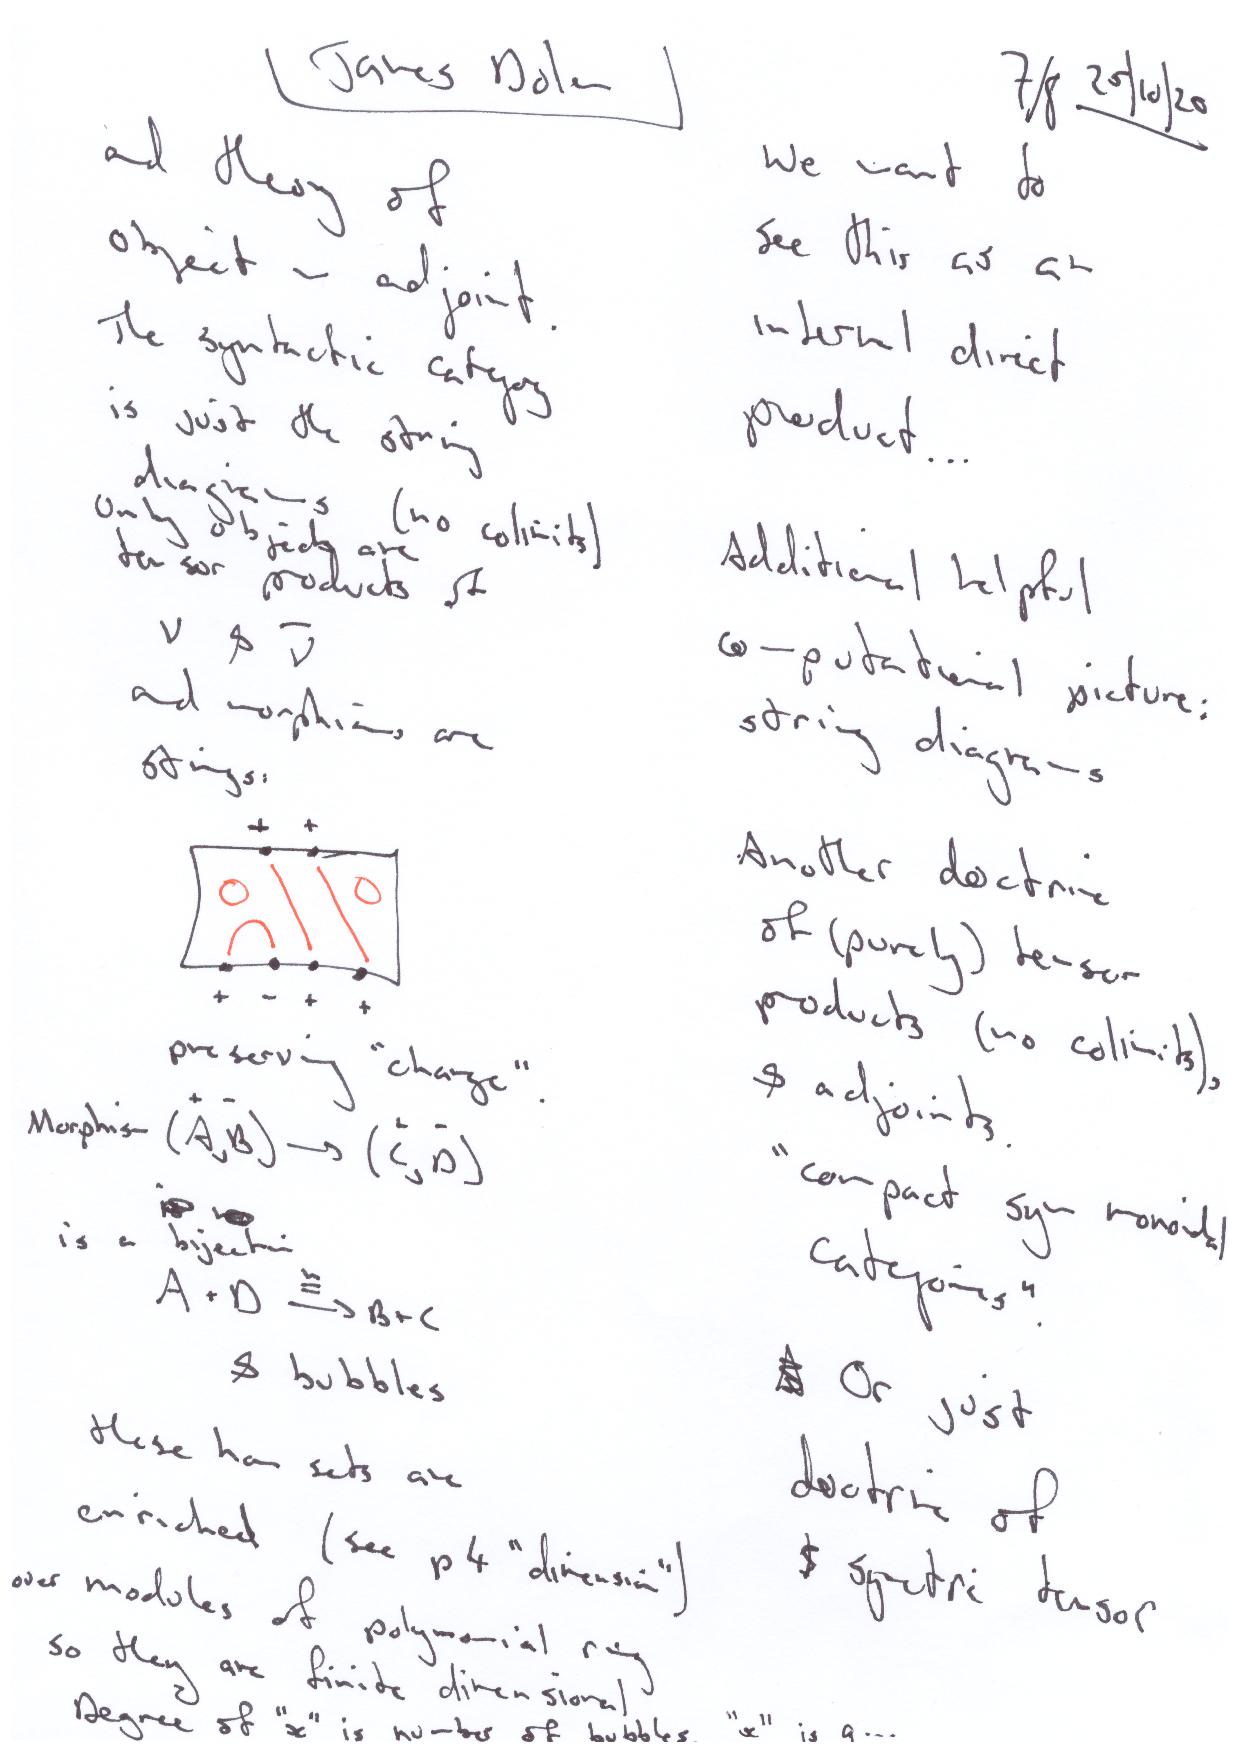 James Dolan
7/8 25/10/20
and theory of
object ~ adjoint.
The syntactic category
is just the string
diagrams (no colimits)
only objects are
tensor products of
V & V̄
and morphisms are
strings.
+ +
+ - + +
preserving "charge".
Morphism (A⁺, B⁻) → (C⁺, D⁻)
is a bijection
A + D ≅→ B + C
& bubbles
these hom sets are
enriched (see p 4 "dimension")
over modules of polynomial ring
so they are finite dimensional
Degree of "x" is number of bubbles. "x" is a...
We want to
see this as an
internal direct
product...
Additional helpful
computational picture:
string diagrams
Another doctrine
of (purely) tensor
products (no colimits),
& adjoints.
"compact sym monoidal
categories".
Or just
doctrine of
symmetric tensor